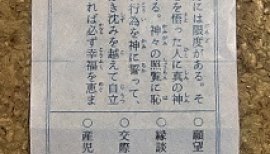 には限度がある。そ
を悟った人に真の神
る。神々の照覧に恥
行為を神に誓って、
き沈みを越えて自立
れば必ず幸福を恵ま
○願望
○縁談
○交際
○産児